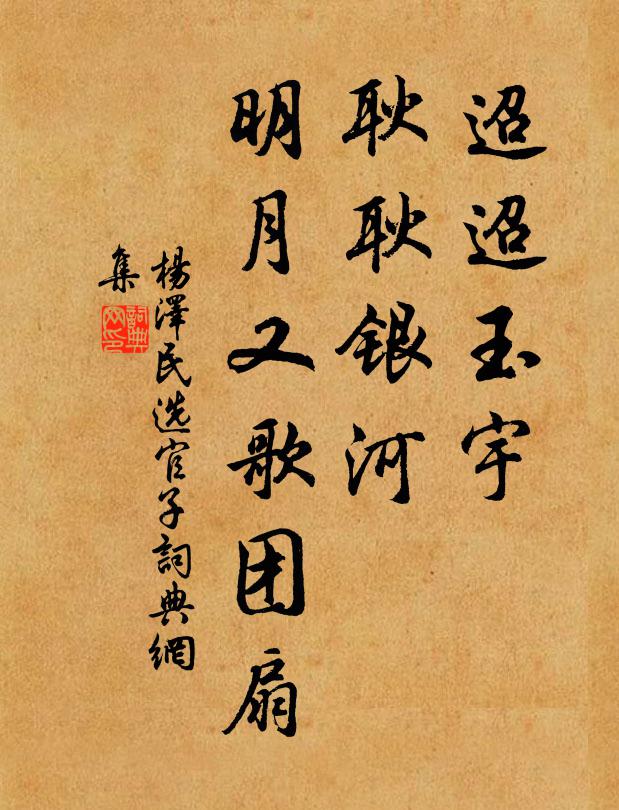 迢迢玉宇
耿耿银河
明月又歌团扇
楊澤民选官子詞典網
集
詞典
网印